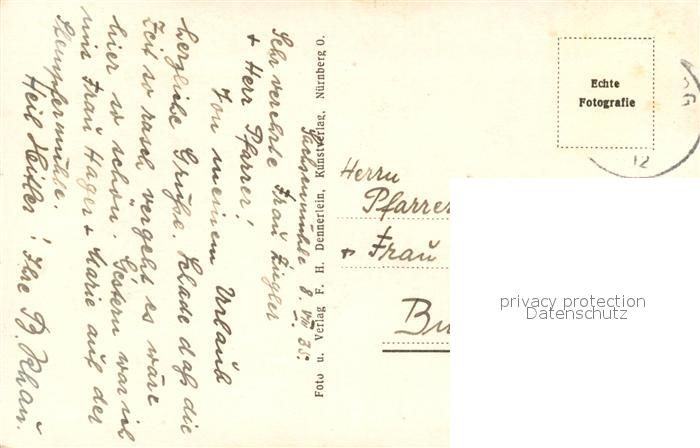 Sachsenmühle 8. VIII. 35.
Sehr verehrte Frau Zugler
+ Herr Pfarrer!
Von meinem Urlaub
herzliche Grüße. Schade daß die
Zeit so rasch vergeht es wäre
hier so schön. Gestern war ich
mit Frau Hager + Marie auf der
Stempfermühle.
Heil Hitler! Ihre B. Khan.
Foto u. Verlag F. H. Dennerlein, Kunstverlag, Nürnberg O.
Echte
Fotografie
12
Herrn
Pfarrer
+ Frau
Bu
privacy protection
Datenschutz